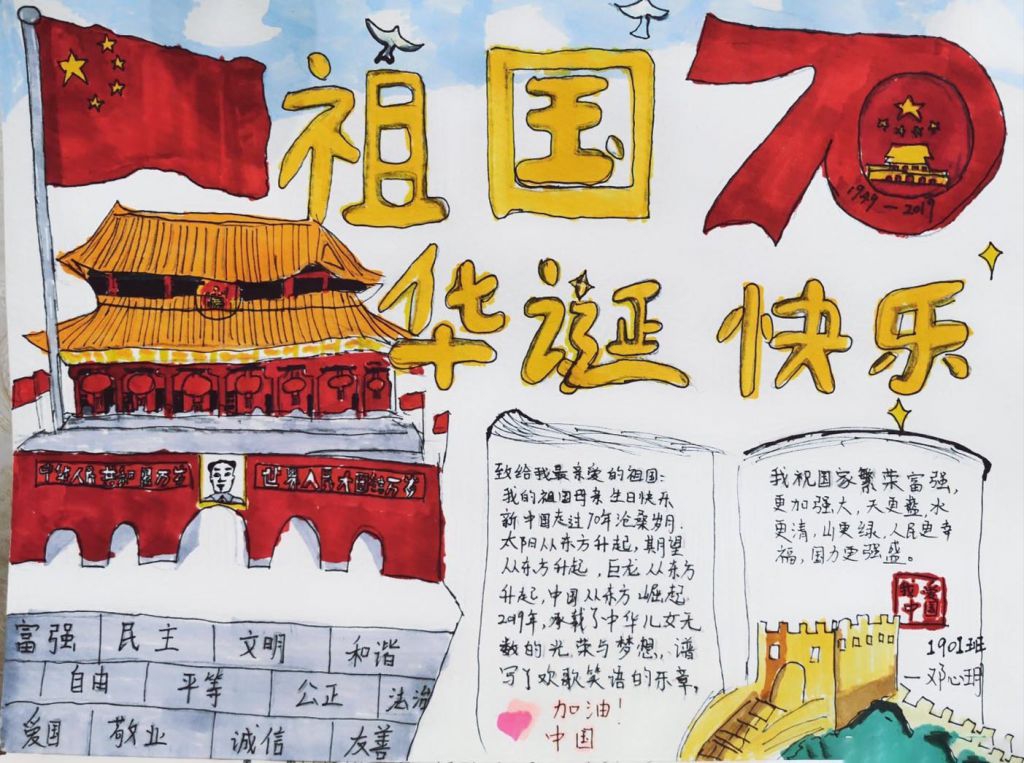 祖国
70
1949—2019
华诞快乐
中华人民共和国万岁
世界人民大团结万岁
致给我最亲爱的祖国:
我的祖国母亲生日快乐
新中国走过70年沧桑岁月.
太阳从东方升起,期望
从东方升起,巨龙从东方
升起,中国从东方崛起
2019年,承载了中华儿女无
数的光荣与梦想,谱
写了欢歌笑语的乐章,
加油!
中国
我祝国家繁荣富强,
更加强大,天更蓝,水
更清,山更绿,人民更幸
福,国力更强盛。
我爱
中国
1901班
—邓心玥
富强 民主 文明 和谐
自由 平等 公正 法治
爱国 敬业 诚信 友善